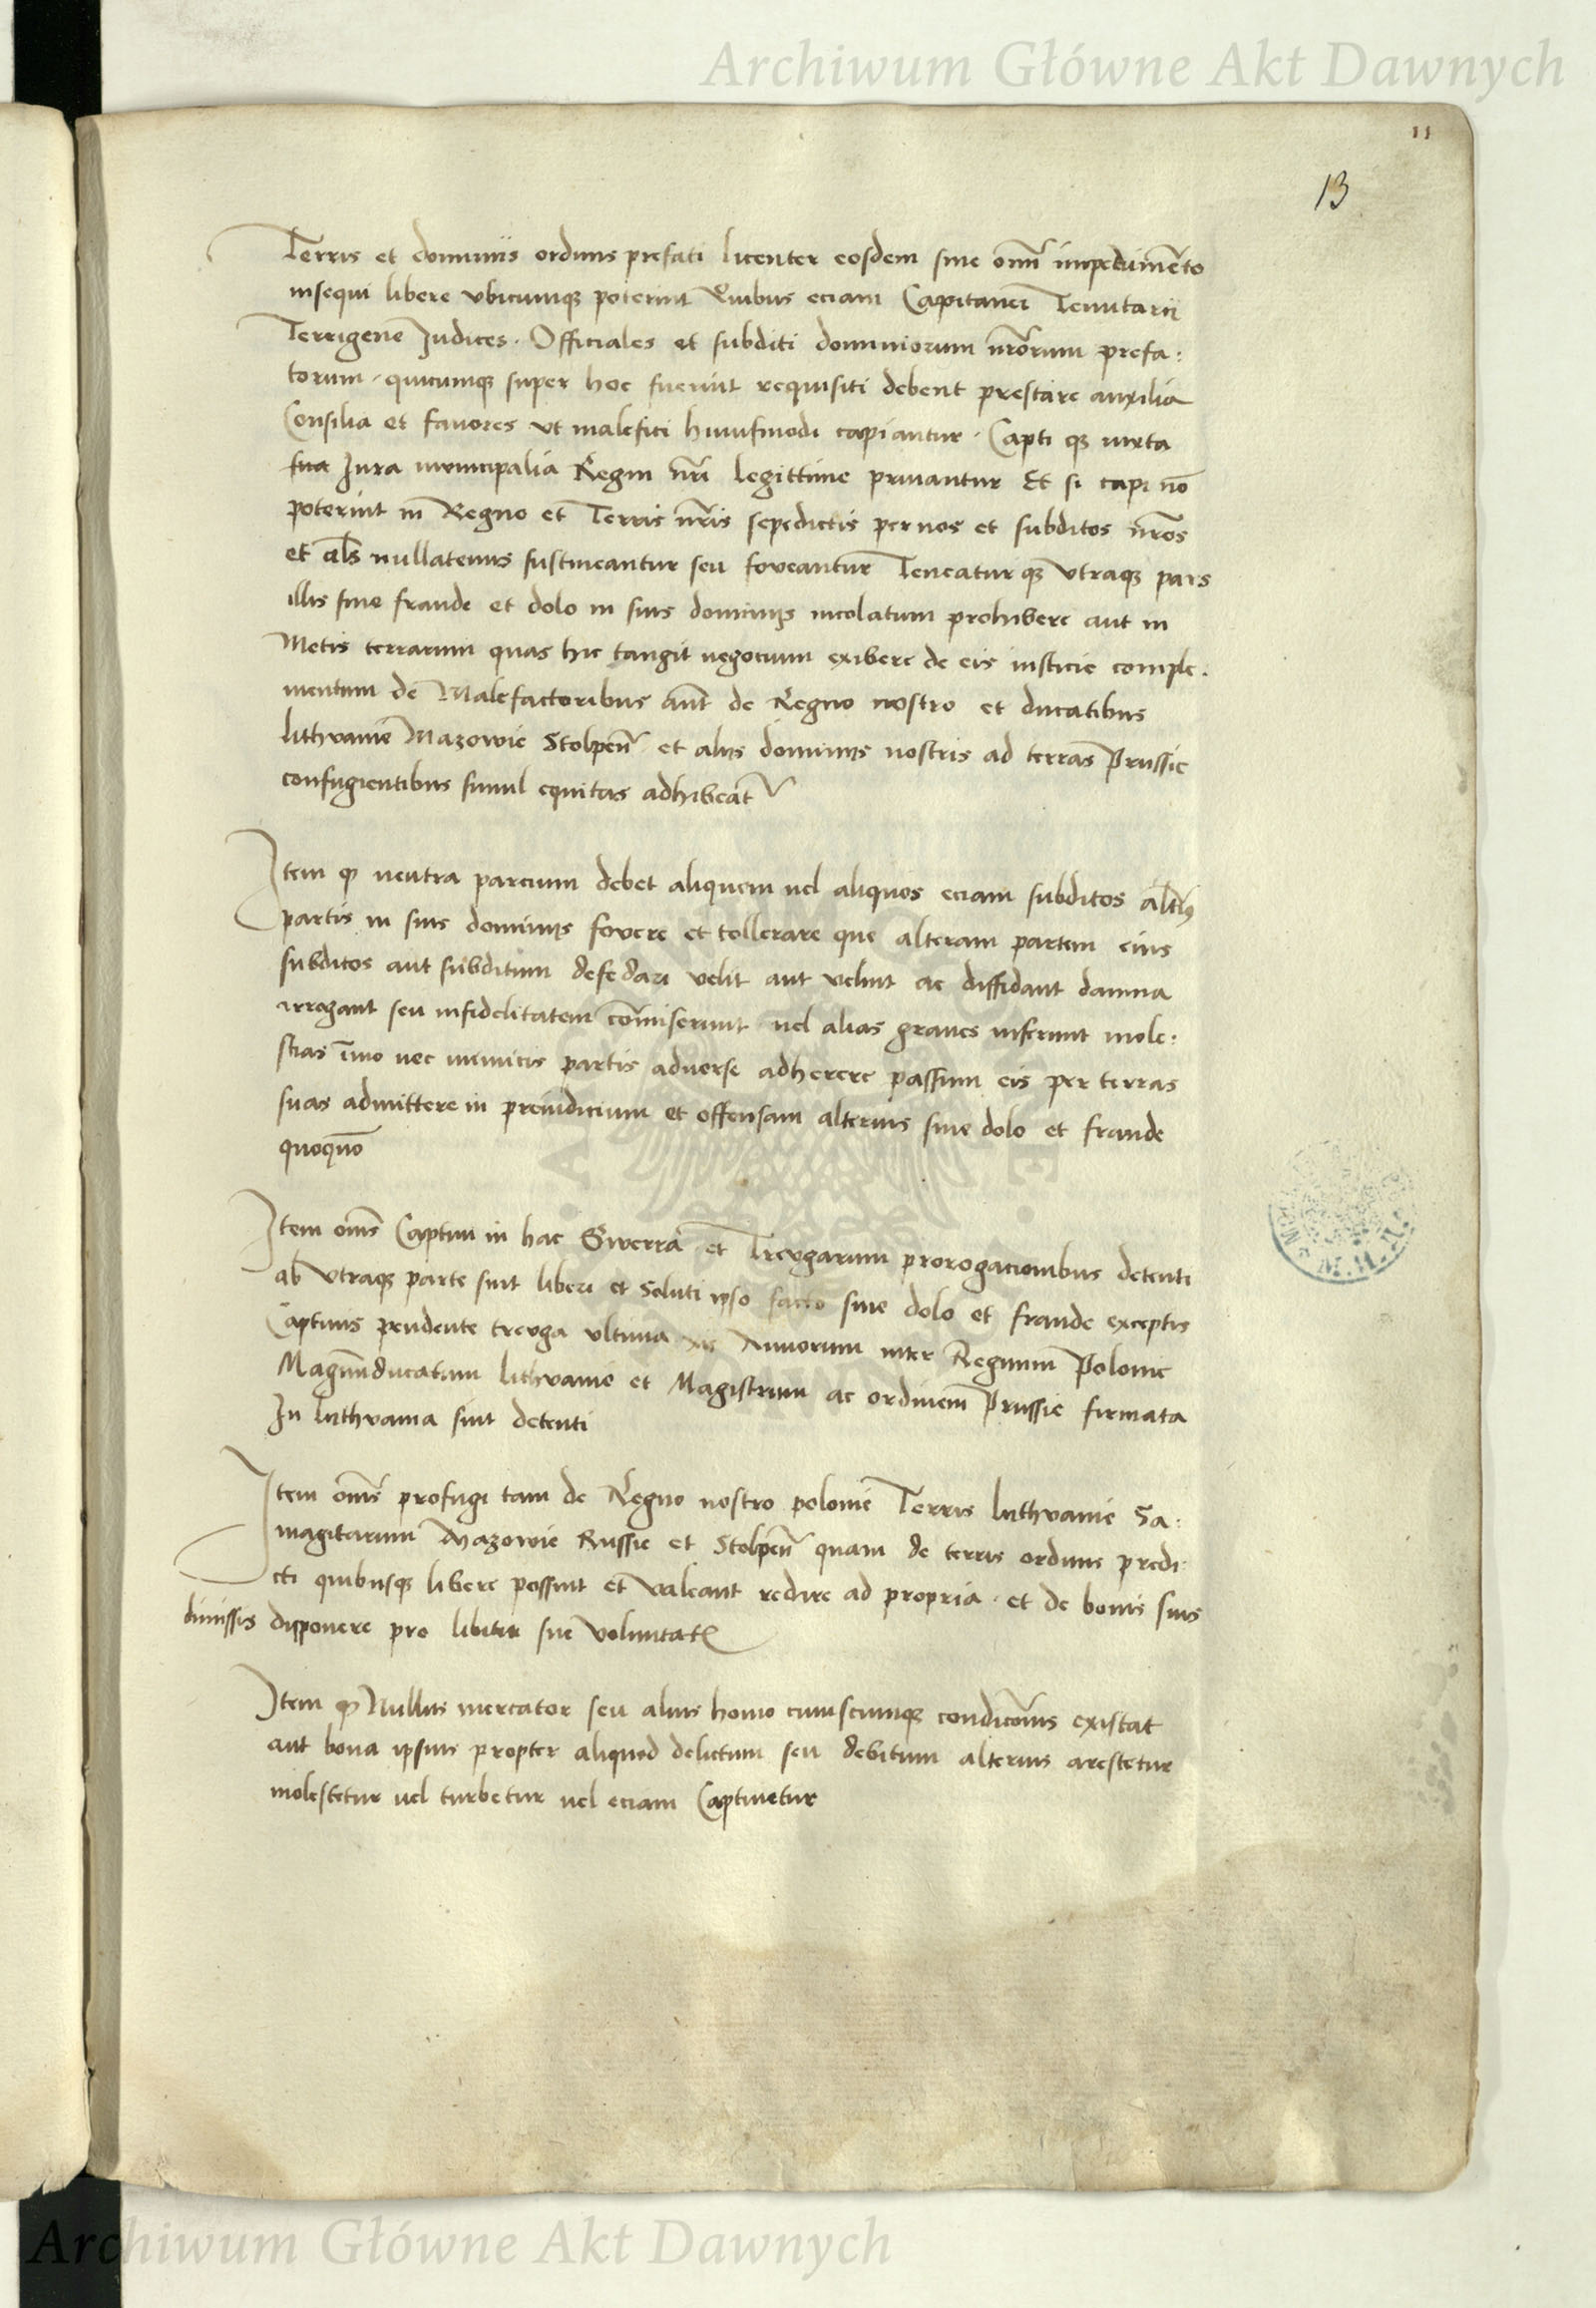 Archiwum Główne Akt Dawnych
11
13
Terris et dominiis ordinis prefati licenter eosdem sine omni impedimento
insequi libere vbicumque poterint Quibus eciam Capitanei Tenutarii
Terrigene Judices. Officiales et subditi dominiorum nrorum prefa:
torum. quicumque super hoc fuerint requisiti debent prestare auxilia
Consilia et fauores vt malefici huiusmodi capiantur. Capti que iuxta
sua Jura municipalia Regni nri legittime priuantur Et si capi no
poterint in Regno et Terris nris sepedictis per nos et subditos nros
et als nullatenus sustineantur seu foveantur Teneatur que vtraque pars
illis sine fraude et dolo in suis dominiis incolatum prohibere aut in
Metis terrarum quas hic tangit negocium exibere de eis iusticie comple.
mentum de Malefactoribus aut de Regno nostro et ducatibus
lithvanie Mazowie Stolpen et aliis dominiis nostris ad terras Prussie
confugientibus simul equitas adhibeat
Item quod neutra parcium debet aliquem uel aliquos eciam subditos altius
partis in suis dominiis fovere et tollerare que alteram partem eius
subditos aut subditum defedari velit aut velint ac diffidant damna
irrogant seu infidelitatem comiserunt uel alias graues inferunt mole:
stias imo nec inimicis partis aduerse adherere passum eis per terras
suas admittere in preiudicium et offensam alterius sine dolo et fraude
quoquo
Item oms Captiui in hac Gwerra et Treugarum prorogacionibus detenti
ab vtraque parte sint liberi et Soluti ipso facto sine dolo et fraude exceptis
Captiuis pendente treuga vltima xii Annorum inter Regnum Polonie
Magnuducatum lithvanie et Magistrum ac ordinem Prussie firmata
In luthvania sint detenti
Item oms profugi tam de Regno nostro polonie Terris luthvanie Sa:
magitarum Mazowie Russie et Stolpen quam de terris ordinis predi.
cti quibusque libere possint et valeant redire ad propria. et de bonis suis
dimissis disponere pro libitu sue voluntatis
Item quod Nullus mercator seu alius homo cuiuscumque condicionis existat
aut bona ipsius propter aliquod delictum seu debitum alterius arestetur
molestetur uel turbetur uel eciam Captiuetur
Archiwum Główne Akt Dawnych